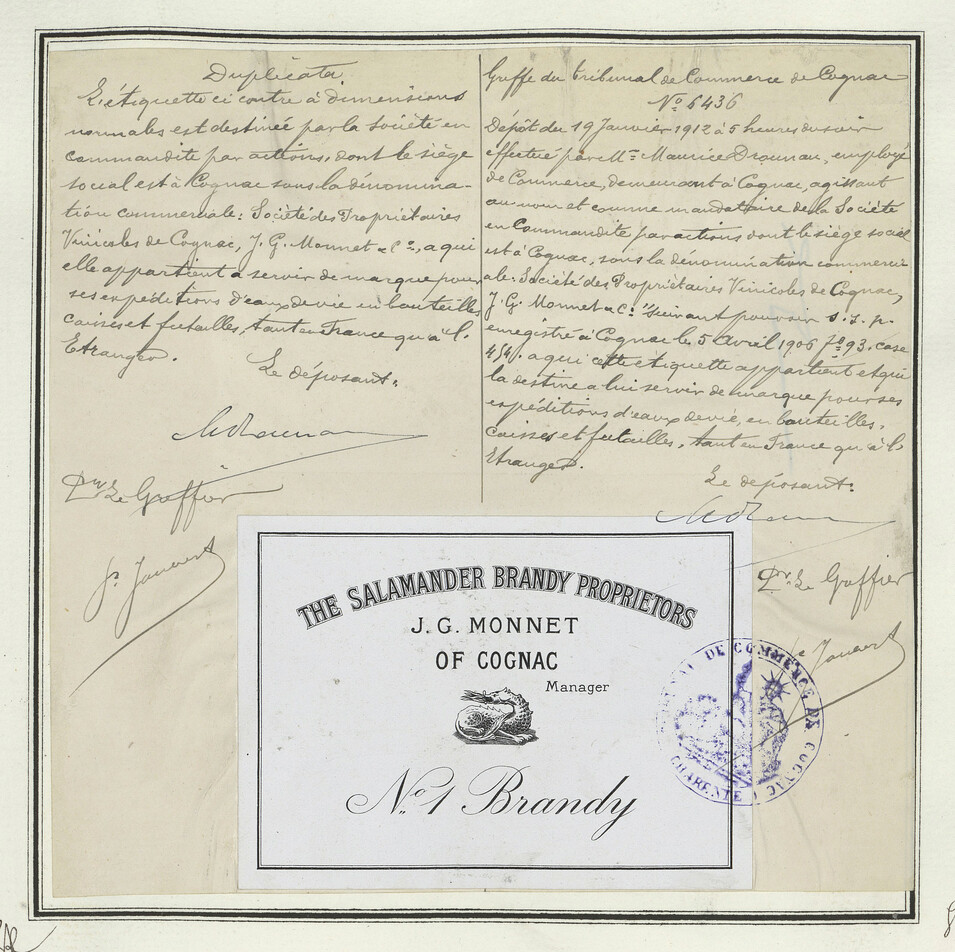 Duplicata.
L'étiquette ci contre à dimensions
normales est destinée par la Société en
commandite par actions, dont le siège
social est à Cognac sous la dénomina-
tion commerciale: Société des Propriétaires
Vinicoles de Cognac, J. G. Monnet & Cie, a qui
elle appartient a servir de marque pour
ses expéditions d'eaux de vie en bouteilles
caisses et futailles, tant en France qu'à l'
Etranger.
Le déposant:
Pr. Le Greffier
Greffe du Tribunal de Commerce de Cognac
No 6436
Dépôt du 19 Janvier 1912 à 5 heures du soir
effectué par Mr Maurice employé
de Commerce, demeurant à Cognac, agissant
au nom et comme mandataire de la Société
en Commandite par actions dont le siège social
est à Cognac, sous la dénomination commerci
ale: Société des Propriétaires Vinicoles de Cognac,
J. G. Monnet & Cie Suivant pouvoir s. s. p.
enregistré à Cognac le 5 Avril 1906 fo 93. case
454. a qui cette étiquette appartient et qui
la destine a lui servir de marque pour ses
expéditions d'eaux de vie, en bouteilles,
caisses et futailles, tant en France qu'à l'
Etranger.
Le déposant:
Pr. Le Greffier
THE SALAMANDER BRANDY PROPRIETORS
J. G. MONNET
OF COGNAC
Manager
No 1 Brandy
TRIBUNAL DE COMMERCE DE COGNAC
CHARENTE